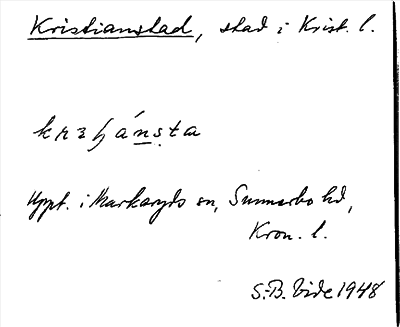 Kristianstad, stad i Krist. l.
krɜʃánsta
Uppt. i Markaryds sn, Sunnerbo hd,
Kron. l.
S.-B. Vide 1948